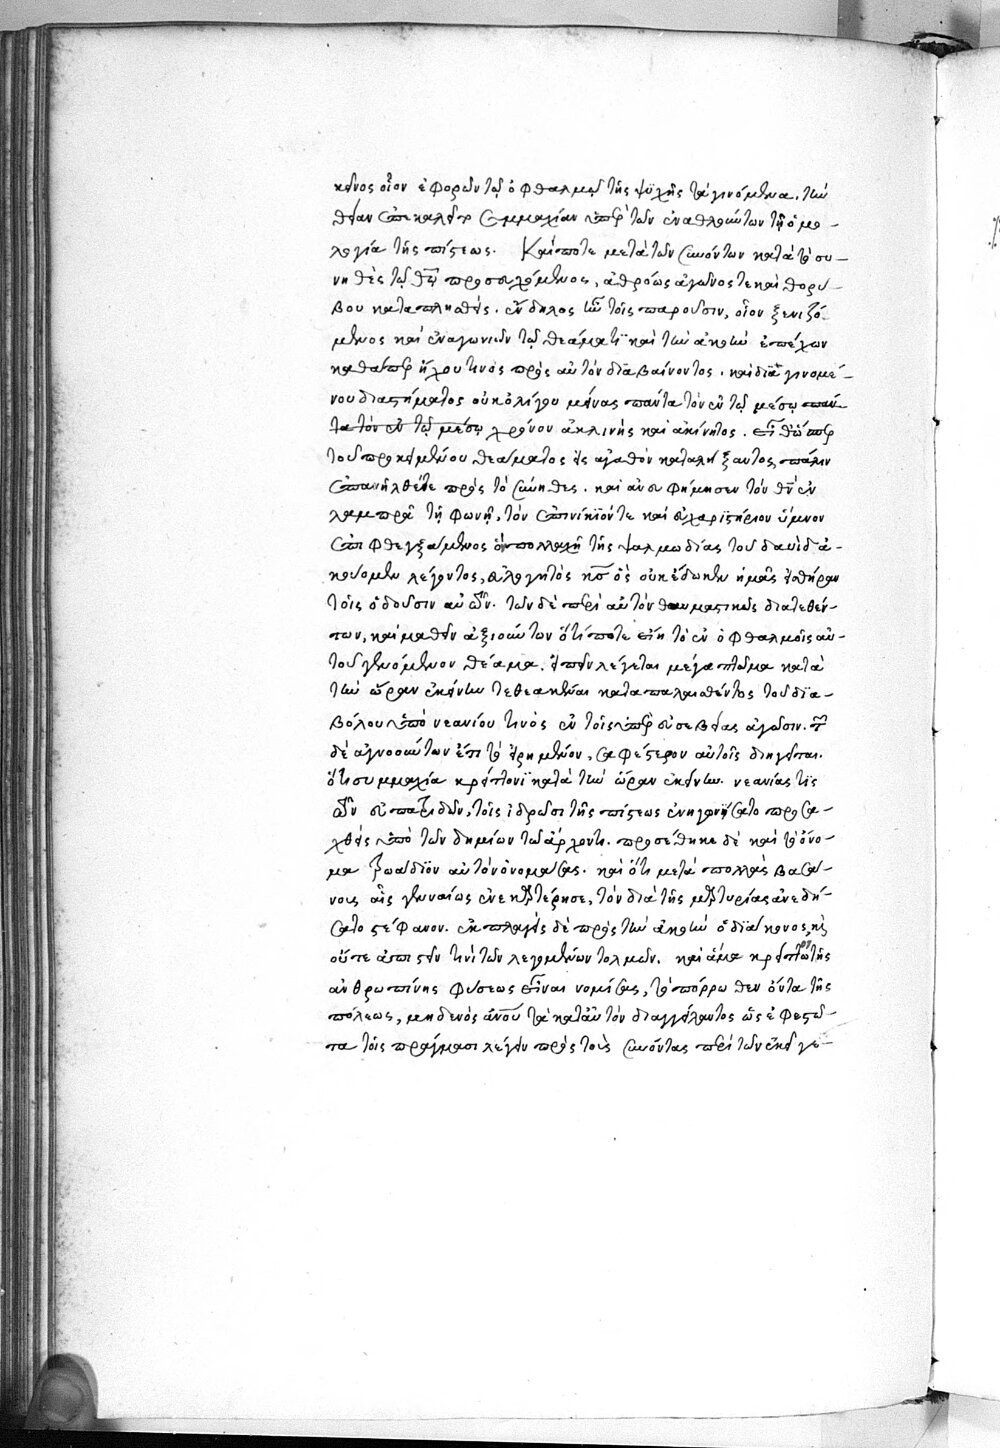 κεῖνος οἷον ἐφορῶν τῷ ὀφθαλμῷ τῆς ψυχῆς τὰ γινόμενα, τὴν
θείαν ἐπεκαλεῖτο συμμαχίαν ὑπὲρ τῶν ἐναθλούντων τῇ ὁμο-
λογία τῆς πίστεως. Καί ποτε μετὰ τῶν συνόντων κατὰ τὸ συ-
νηθὲς τῷ θῷ προσευχόμενος, ἀθρόως ἀγῶνος τε καὶ θορύ-
βου καταπλησθεὶς. ἔνδηλος ἦν τοῖς παροῦσιν, οἷον ξενιζό-
μενος καὶ ἐναγωνιῶν τῷ θεάματι καὶ τὴν ἀκοὴν ἐπέχων
καθάπερ ἤχου τινὸς πρὸς αὐτὸν διαβαίνοντος. καὶ διαγινομέ-
νου διαστήματος οὐκ ὀλίγου μείνας πάντα τὸν ἐν τῷ μέσῳ πάν-
τα τὸν ἐν τῷ μέσῳ χρόνον ἀκλινὴς καὶ ἀκίνητος. ὥσπερ
τοῦ προκειμένου θεάματος εἰς ἀγαθὸν καταλήξαντος, πάλιν
ἐπανῆλθέ τε πρὸς τὸ σύνηθες. καὶ ἀνευφήμησεν τὸν θν ἐν
λαμπρᾷ τῇ φωνῇ, τὸν ἐπινίκιόν τε καὶ εὐχαριστήριον ὕμνον
ἐπιφθεγξάμενος ὃν πολλαχῇ τῆς ψαλμωδίας τοῦ δαυὶδ ἀ-
κούομεν λέγοντος, εὐλογητὸς κς ὃς οὐκ ἔδωκεν ἡμᾶς εἰς θήραν
τοῖς ὀδοῦσιν αὐτῶν. τῶν δὲ περὶ αὐτὸν θαυμαστικῶς διατεθέν-
των, καὶ μαθεῖν ἀξιούντων ὅτί ποτε εἴη τὸ ἐν ὀφθαλμοῖς αὐ-
τοῦ γενόμενον θέαμα. εἰπεῖν λέγεται μέγα πτῶμα κατὰ
τὴν ὥραν ἐκείνην τεθεακέναι καταπαλαισθέντος τοῦ δια-
βόλου ὑπὸ νεανίου τινὸς ἐν τοῖς ὑπὲρ εὐσεβείας ἀγῶσιν. τῶν
δὲ ἀγνοούντων ἔτι τὸ εἰρημένον, σαφέστερον αὐτοῖς διηγεῖται.
ὅτι συμμαχία κρείττονι κατὰ τὴν ὥραν ἐκείνην. νεανίας τὶς
τῶν εὐπατριδῶν, τοῖς ἱδρῶσι τῆς πίστεως ἐνηγωνίσατο προσα-
χθεὶς ὑπὸ τῶν δημίων τῷ ἄρχοντι. προσέθηκε δὲ καὶ τὸ ὄνο-
μα τρωάδιον αὐτὸν ὀνομάσας. καὶ ὅτι μετὰ πολλὰς βασά-
νους αἷς γενναίως ἐνεκαρτέρησε, τὸν διὰ τῆς μαρτυρίας ἀνεδή-
σατο στέφανον. ἐκπλαγεὶς δὲ πρὸς τὴν ἀκοὴν ὁ διάκονος, ὡς
οὔτε ἀπιστεῖν τινὶ τῶν λεγομένων τολμῶν. καὶ ἅμα κρεῖττον τῆς
ἀνθρωπίνης φύσεως εἶναι νομίσας, τὸ πόρρωθεν ὄντα τῆς
πόλεως, μηδενὸς ἀνου τὰ κατ' αὐτὸν διαγγείλαντος ὡς ἐφεστῶ-
τα τοῖς πράγμασι λέγειν πρὸς τοὺς συνόντας περὶ τῶν ἐκεῖ γε-